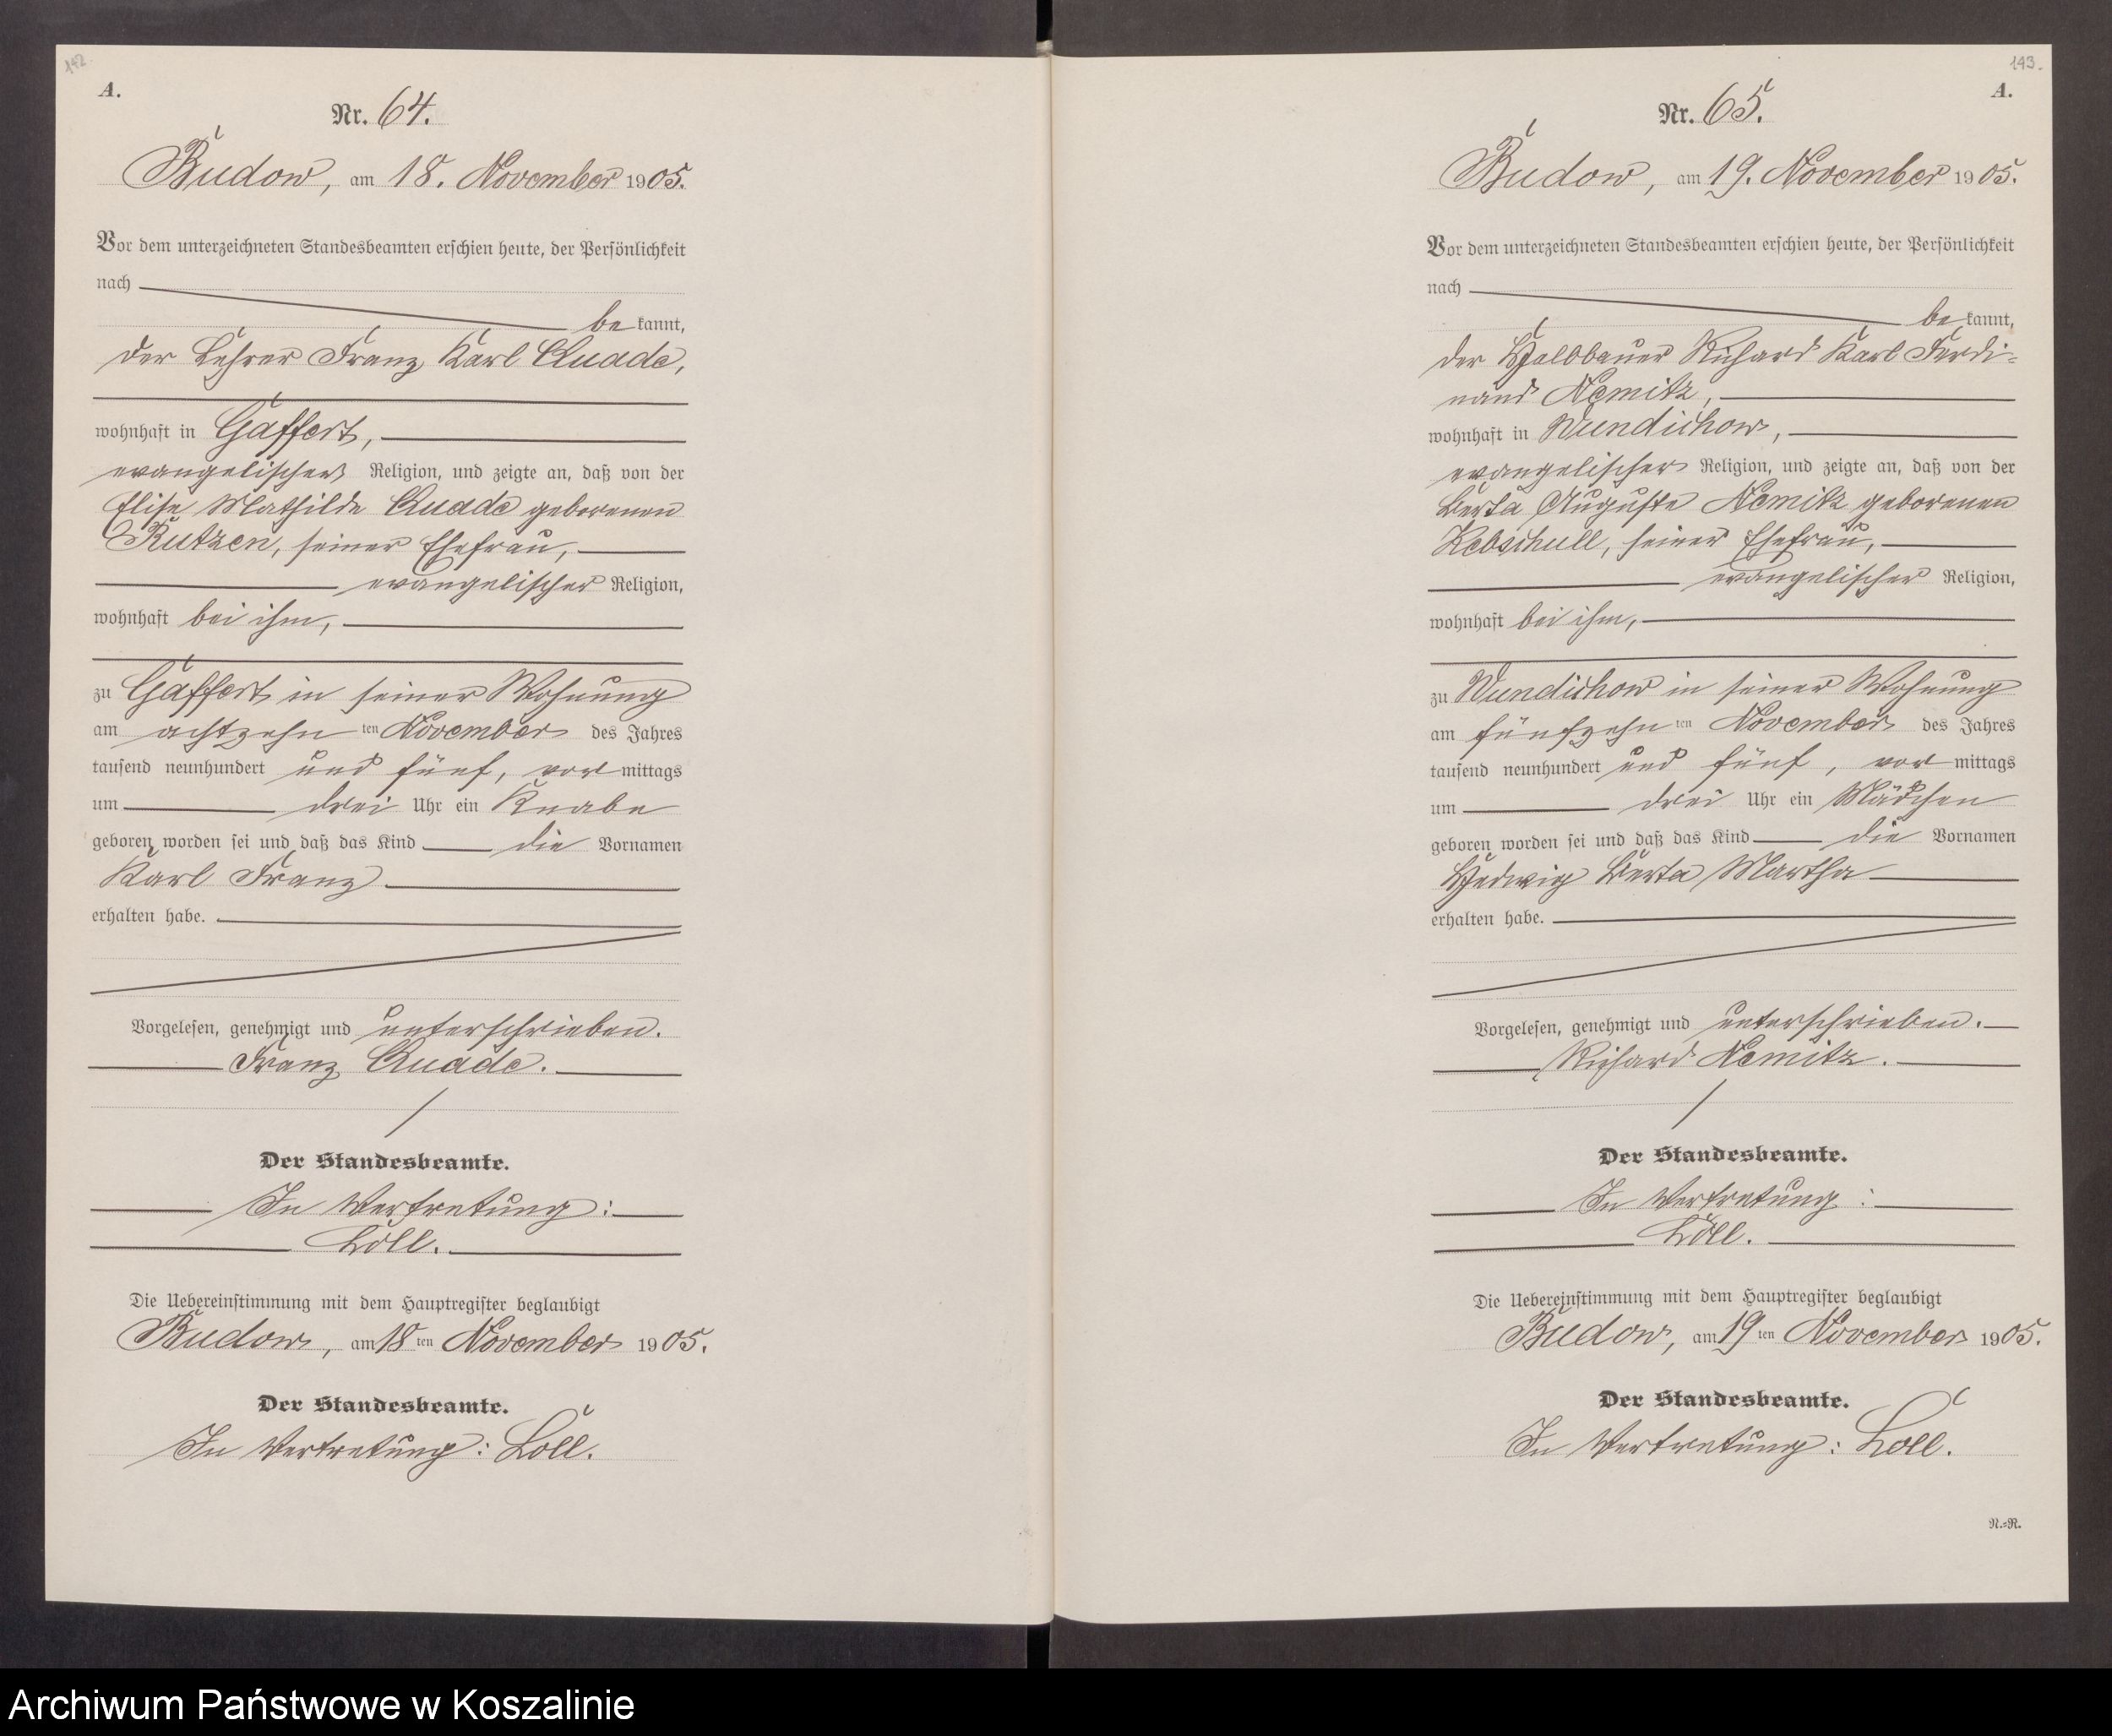 142.
A.
Nr. 64.
Budow, am 18. November 1905.
Vor dem unterzeichneten Standesbeamten erschien heute, der Persönlichkeit
nach
be kannt,
der Lehrer Franz Karl Quade,
wohnhaft in Gaffert,
evangelischer Religion, und zeigte an, daß von der
Elise Mathilde Quade geborenen
Kutzen, seiner Ehefrau,
evangelischer Religion,
wohnhaft bei ihm,
zu Gaffert in seiner Wohnung
am achtzehn ten November des Jahres
tausend neunhundert und fünf, vor mittags
um drei Uhr ein Knabe
geboren worden sei und daß das Kind die Vornamen
Karl Franz
erhalten habe.
Vorgelesen, genehmigt und unterschrieben.
Franz Quade.
Der Standesbeamte.
In Vertretung:
Löll.
Die Uebereinstimmung mit dem Hauptregister beglaubigt
Budow, am 18 ten November 1905.
Der Standesbeamte.
In Vertretung: Löll.
143.
A.
Nr. 65.
Budow, am 19. November 1905.
Vor dem unterzeichneten Standesbeamten erschien heute, der Persönlichkeit
nach
be kannt,
der Halbbauer Richard Karl Ferdi-
nand Nemitz,
wohnhaft in Wundichow,
evangelischer Religion, und zeigte an, daß von der
Berta Auguste Nemitz geborenen
Kebschull, seiner Ehefrau,
evangelischer Religion,
wohnhaft bei ihm,
zu Wundichow in seiner Wohnung
am fünfzehn ten November des Jahres
tausend neunhundert und fünf, vor mittags
um drei Uhr ein Mädchen
geboren worden sei und daß das Kind die Vornamen
Hedwig Berta Martha
erhalten habe.
Vorgelesen, genehmigt und unterschrieben.
Richard Nemitz.
Der Standesbeamte.
In Vertretung:
Löll.
Die Uebereinstimmung mit dem Hauptregister beglaubigt
Budow, am 19 ten November 1905.
Der Standesbeamte.
In Vertretung: Löll.
N.-R.
Archiwum Państwowe w Koszalinie